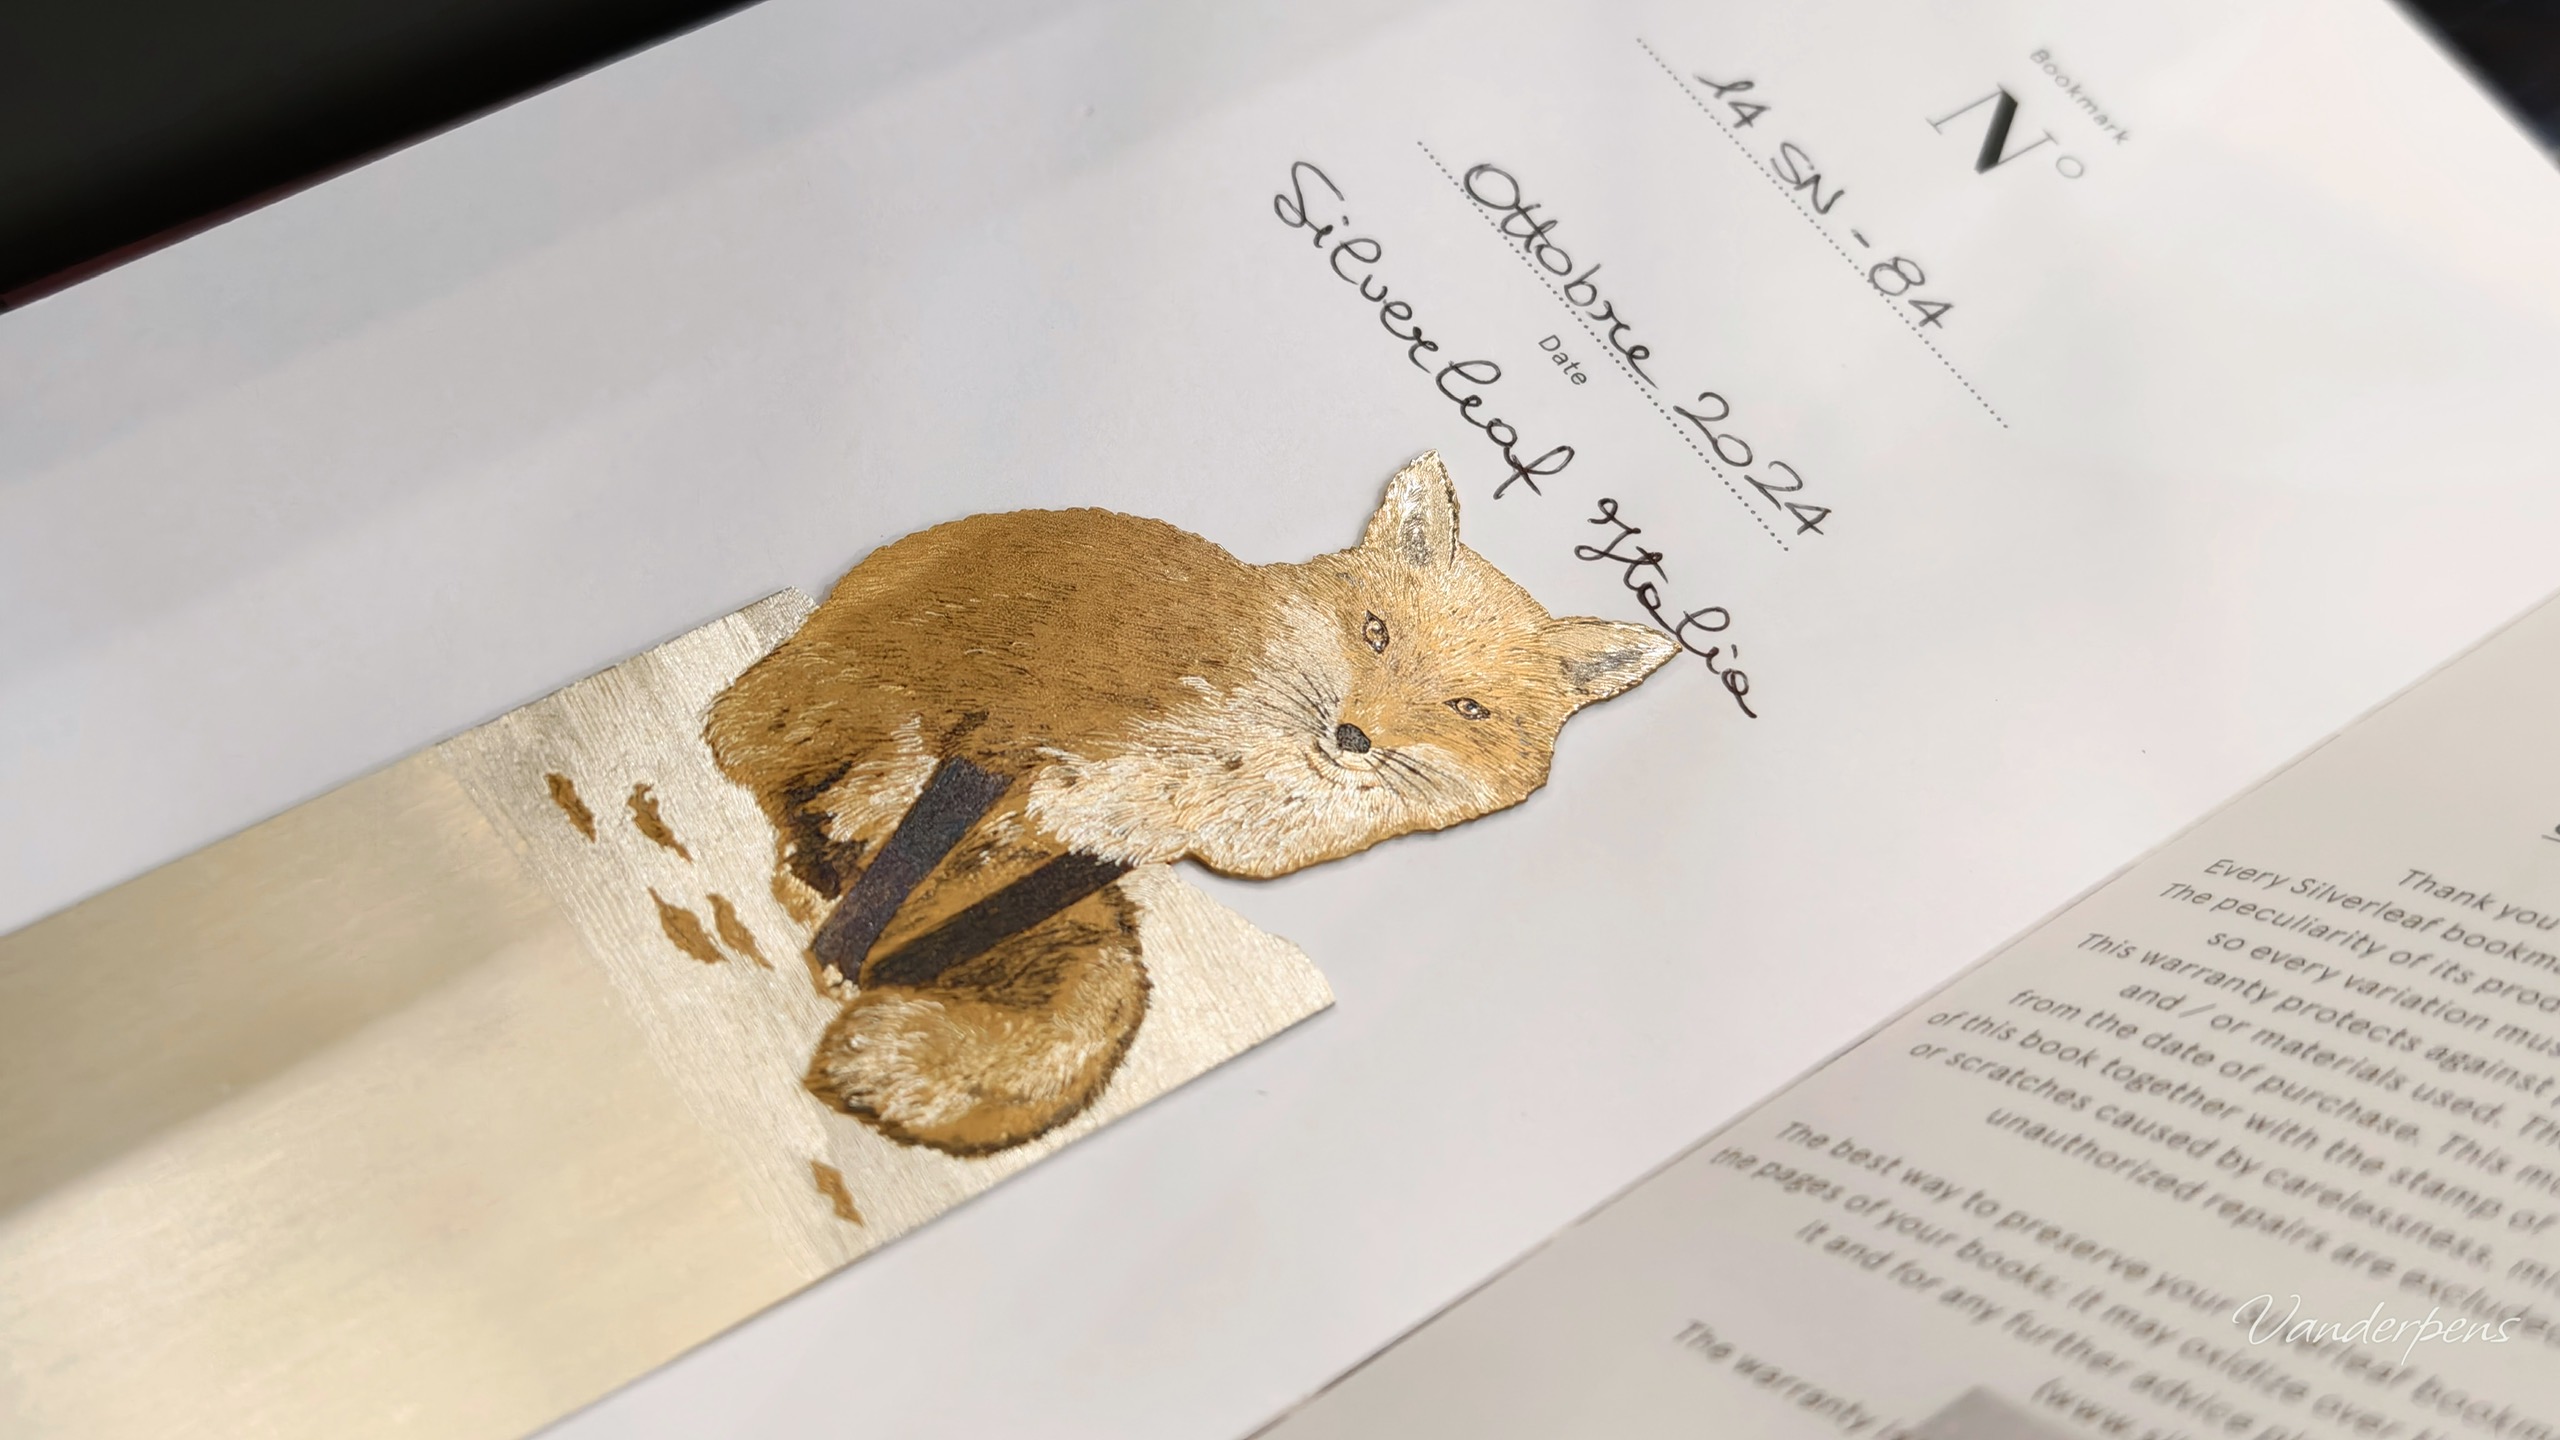 Bookmark
N°
14 SN - 84
Ottobre 2024
Date
Silverleaf Italia
Thank you
Every Silverleaf bookm
The peculiarity of its prod
so every variation mus
This warranty protects against
and / or materials used. Th
from the date of purchase. This
of this book together with the stamp of
or scratches caused by carelessness,
unauthorized repairs are exclude
The best way to preserve your Silverleaf bookm
the pages of your books; it may oxidize over
it and for any further advice
(www.
The warranty
Vanderpens